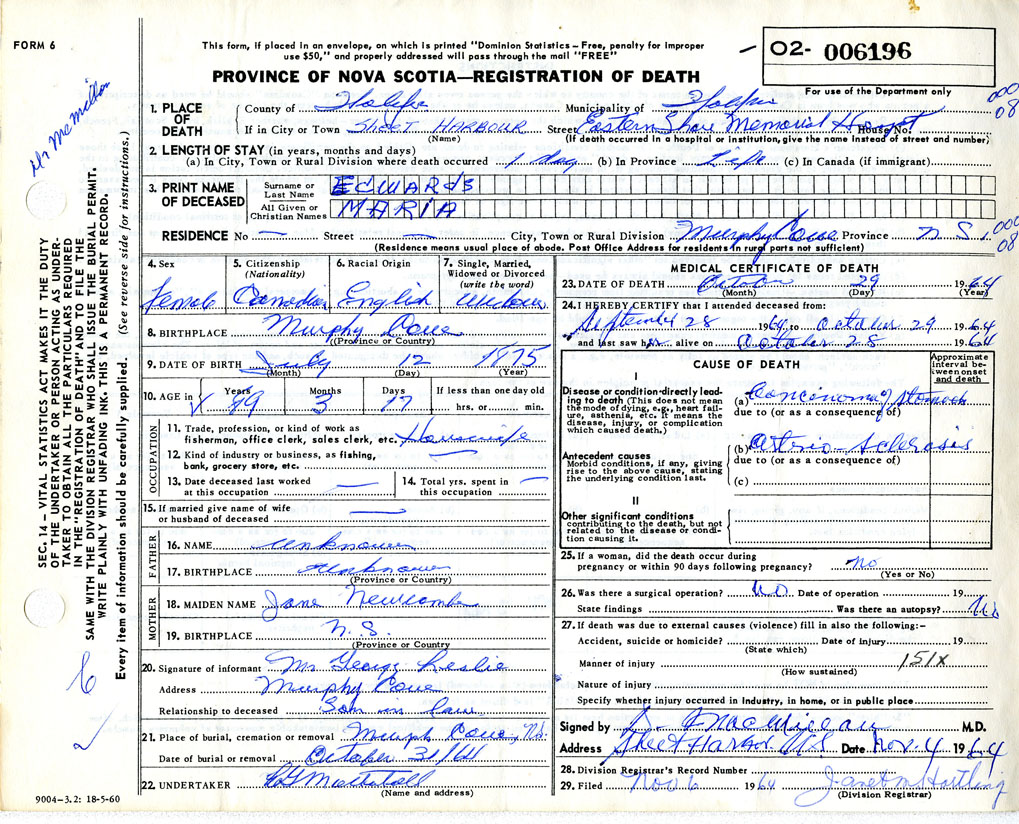 FORM 6
This form, if placed in an envelope, on which is printed "Dominion Statistics – Free, penalty for improper
use $50," and properly addressed will pass through the mail "FREE"
PROVINCE OF NOVA SCOTIA—REGISTRATION OF DEATH
02- 006196
For use of the Department only
000
08
Mr McMillan
1. PLACE OF DEATH
County of Halifax Municipality of Halifax
If in City or Town SHEET HARBOUR Street Eastern Shore Memorial Hospt House No.
(Name) (If death occurred in a hospital or institution, give the name instead of street and number)
2. LENGTH OF STAY (in years, months and days)
(a) In City, Town or Rural Division where death occurred 1 day (b) In Province Life (c) In Canada (if immigrant)
3. PRINT NAME OF DECEASED
Surname or Last Name EDWARDS
All Given or Christian Names MARIA
000
08
RESIDENCE No — Street — City, Town or Rural Division Murphy Cove Province N S.
(Residence means usual place of abode. Post Office Address for residents in rural parts not sufficient)
4. Sex Female
5. Citizenship (Nationality) Canadian
6. Racial Origin English
7. Single, Married, Widowed or Divorced (write the word) Widow
8. BIRTHPLACE Murphy Cove
(Province or Country)
9. DATE OF BIRTH July 12 1875
(Month) (Day) (Year)
10. AGE in Years 89 Months 3 Days 17 If less than one day old hrs. or min.
OCCUPATION
11. Trade, profession, or kind of work as
fisherman, office clerk, sales clerk, etc. Housewife
12. Kind of industry or business, as fishing,
bank, grocery store, etc. —
13. Date deceased last worked
at this occupation —
14. Total yrs. spent in
this occupation —
15. If married give name of wife
or husband of deceased —
FATHER
16. NAME Unknown
17. BIRTHPLACE Unknown
(Province or Country)
MOTHER
18. MAIDEN NAME Jane Newcombe
19. BIRTHPLACE N.S.
(Province or Country)
20. Signature of informant Mr George Leslie
Address Murphy Cove
Relationship to deceased Son in law
21. Place of burial, cremation or removal Murphy Cove, N.S.
Date of burial or removal October 31/64
22. UNDERTAKER
(Name and address)
MEDICAL CERTIFICATE OF DEATH
23. DATE OF DEATH October 29 1964
(Month) (Day) (Year)
24. I HEREBY CERTIFY that I attended deceased from:
September 28 1964 to October 29 1964
and last saw her alive on October 28 1964
CAUSE OF DEATH
Approximate interval between onset and death
I
Disease or condition directly leading to death (This does not mean the mode of dying, e.g., heart failure, asthenia, etc. It means the disease, injury, or complication which caused death.)
(a) Carcinoma of stomach
due to (or as a consequence of)
Antecedent causes
Morbid conditions, if any, giving rise to the above cause, stating the underlying condition last.
(b) Artrio Sclerosis
due to (or as a consequence of)
(c)
II
Other significant conditions
contributing to the death, but not related to the disease or condition causing it.
25. If a woman, did the death occur during
pregnancy or within 90 days following pregnancy? no
(Yes or No)
26. Was there a surgical operation? No. Date of operation 19
State findings Was there an autopsy? No
27. If death was due to external causes (violence) fill in also the following:–
Accident, suicide or homicide? Date of injury 19
(State which)
Manner of injury 151X
(How sustained)
Nature of injury
Specify whether injury occurred in industry, in home, or in public place
Signed by D. MacMillan M.D.
Address Sheet Harbor N S Date Nov. 4 1964
28. Division Registrar's Record Number
29. Filed Nov 6 1964 Janet M Hartling
(Division Registrar)
SEC. 14 — VITAL STATISTICS ACT MAKES IT THE DUTY
OF THE UNDERTAKER OR PERSON ACTING AS UNDER-
TAKER TO OBTAIN ALL THE PARTICULARS REQUIRED
IN THE "REGISTRATION OF DEATH" AND TO FILE THE
SAME WITH THE DIVISION REGISTRAR WHO SHALL ISSUE THE BURIAL PERMIT.
WRITE PLAINLY WITH UNFADING INK. THIS IS A PERMANENT RECORD.
Every item of information should be carefully supplied. (See reverse side for instructions.)
6
9004-3.2: 18-5-60